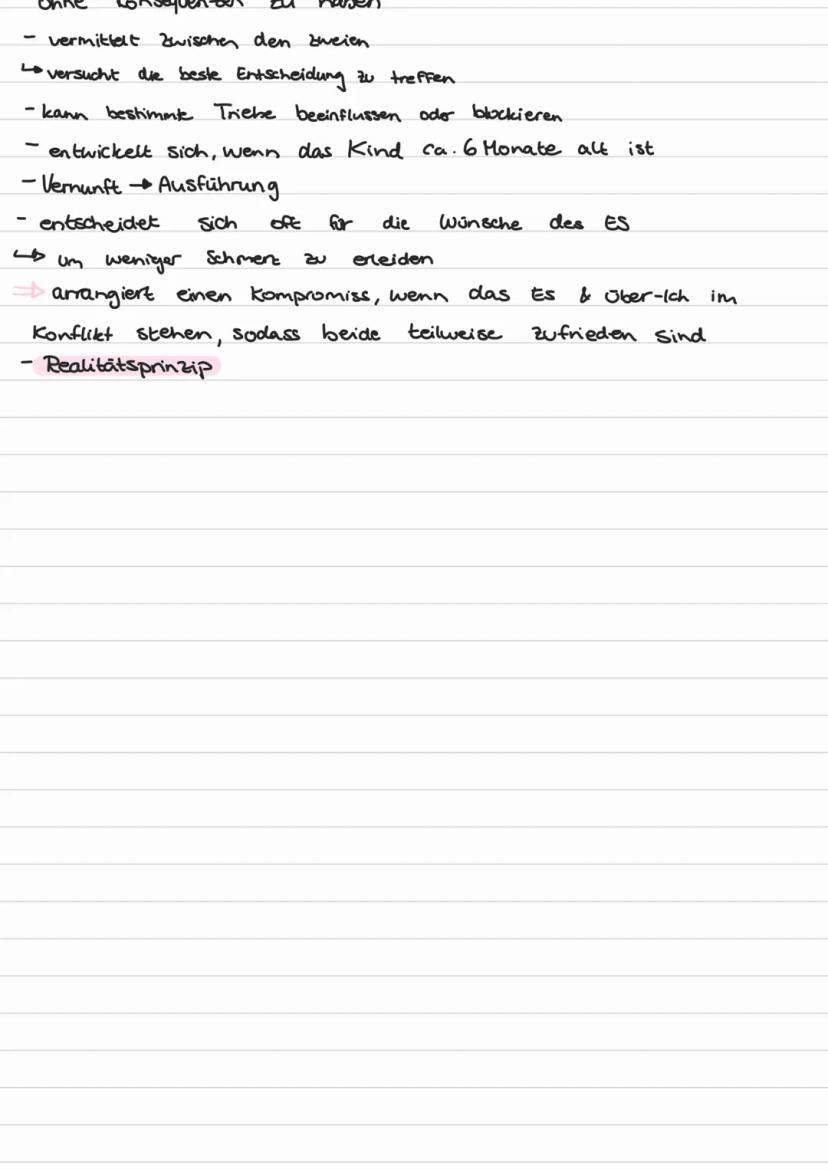 ohne Konsequenzen zu haben
- vermittelt zwischen den zweien
↳ versucht die beste Entscheidung zu treffen
- kann bestimmte Triebe beeinflussen oder blockieren
- entwickelt sich, wenn das Kind ca. 6 Monate alt ist
- Vernunft → Ausführung
- entscheidet sich oft für die Wünsche des ES
↳ um weniger Schmerz zu erleiden
⇒ arrangiert einen Kompromiss, wenn das Es & Über-Ich im
Konflikt stehen, sodass beide teilweise zufrieden sind
- Realitätsprinzip